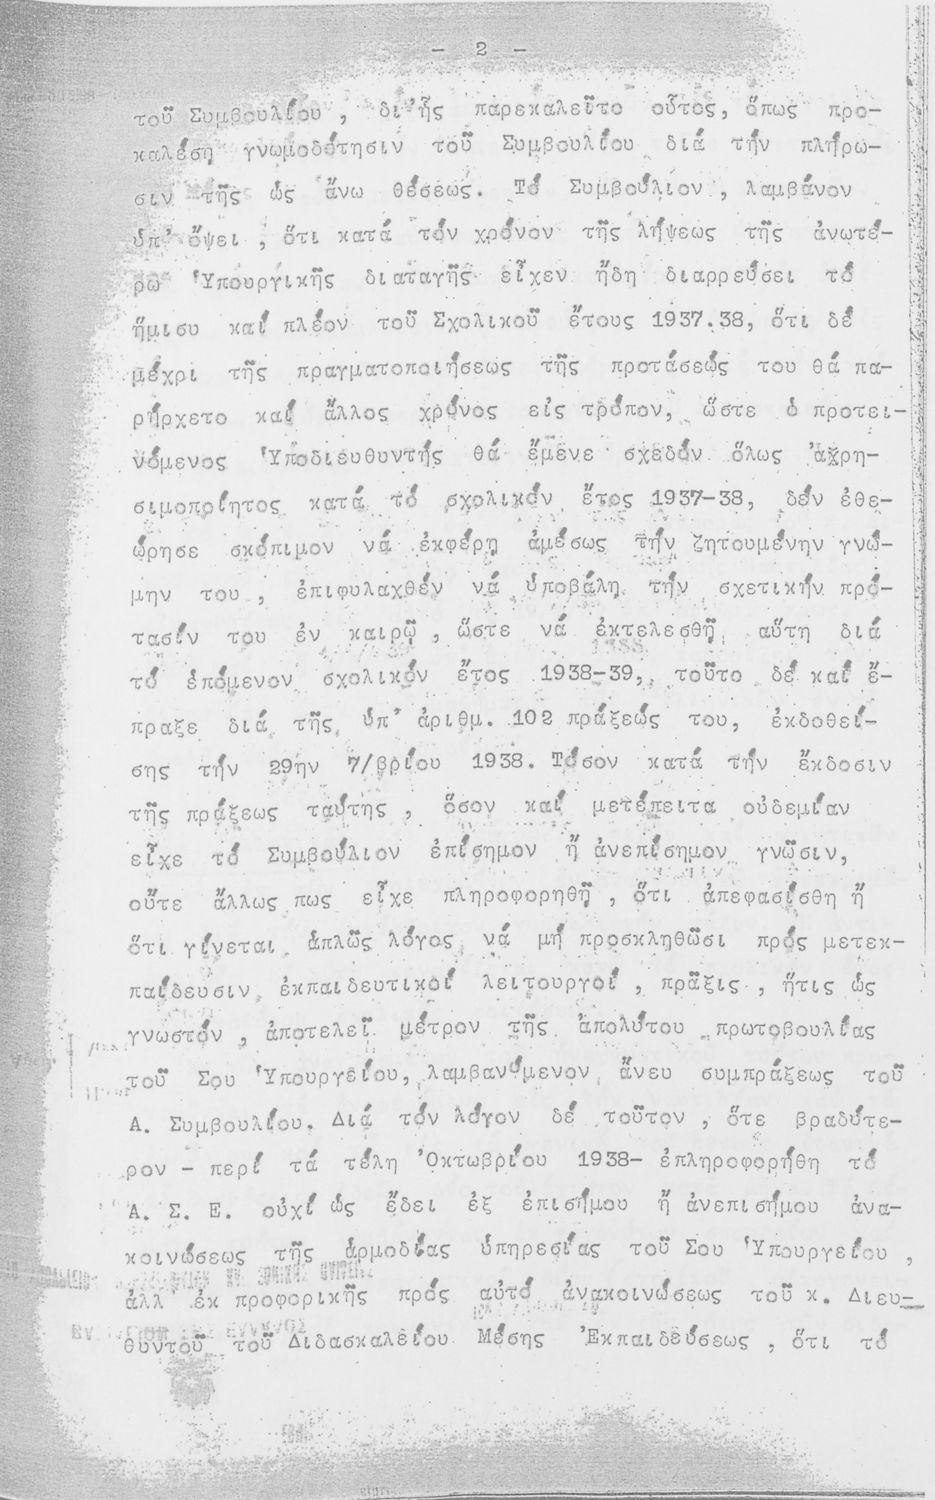 - 2 -
τοῦ Συμβουλίου , δι'ἧς παρεκαλεῖτο οὗτος, ὅπως προ-
καλέσῃ γνωμοδότησιν τοῦ Συμβουλίου διά τήν πλήρω-
σιν τῆς ὡς ἄνω θέσεως. Τό Συμβούλιον , λαμβάνον
ὑπ' ὄψει , ὅτι κατά τόν χρόνον τῆς λήψεως τῆς ἀνωτέ-
ρω Ὑπουργικῆς διαταγῆς εἶχεν ἤδη διαρρεύσει τό
ἥμισυ καί πλέον τοῦ Σχολικοῦ ἔτους 1937.38, ὅτι δέ
μέχρι τῆς πραγματοποιήσεως τῆς προτάσεώς του θά πα-
ρήρχετο καί ἄλλος χρόνος εἰς τρόπον, ὥστε ὁ προτει-
νόμενος Ὑποδιευθυντής θά ἔμενε σχεδόν ὅλως ἀχρη-
σιμοποίητος κατά τό σχολικόν ἔτος 1937-38, δέν ἐθε-
ώρησε σκόπιμον νά ἐκφέρῃ ἀμέσως τήν ζητουμένην γνώ-
μην του , ἐπιφυλαχθέν νά ὑποβάλῃ τήν σχετικήν πρό-
τασίν του ἐν καιρῷ , ὥστε νά ἐκτελεσθῇ αὕτη διά
τό ἑπόμενον σχολικόν ἔτος 1938-39, τοῦτο δέ καί ἔ-
πραξε διά τῆς ὑπ' ἀριθμ. 102 πράξεώς του, ἐκδοθεί-
σης τήν 29ην 7/βρίου 1938. Τόσον κατά τήν ἔκδοσιν
τῆς πράξεως ταύτης , ὅσον καί μετέπειτα οὐδεμίαν
εἶχε τό Συμβούλιον ἐπίσημον ἤ ἀνεπίσημον γνῶσιν,
οὔτε ἄλλως πως εἶχε πληροφορηθῇ , ὅτι ἀπεφασίσθη ἤ
ὅτι γίνεται ἁπλῶς λόγος νά μή προσκληθῶσι πρός μετεκ-
παίδευσιν ἐκπαιδευτικοί λειτουργοί , πρᾶξις , ἥτις ὡς
γνωστόν , ἀποτελεῖ μέτρον τῆς ἀπολύτου πρωτοβουλίας
τοῦ Σου Ὑπουργείου, λαμβανόμενον ἄνευ συμπράξεως τοῦ
Α. Συμβουλίου. Διά τόν λόγον δέ τοῦτον , ὅτε βραδύτε-
ρον - περί τά τέλη Ὀκτωβρίου 1938- ἐπληροφορήθη τό
Α. Σ. Ε. οὐχί ὡς ἔδει ἐξ ἐπισήμου ἤ ἀνεπισήμου ἀνα-
κοινώσεως τῆς ἁρμοδίας ὑπηρεσίας τοῦ Σου Ὑπουργείου ,
ἀλλ ἐκ προφορικῆς πρός αὐτό ἀνακοινώσεως τοῦ κ. Διευ-
θυντοῦ τοῦ Διδασκαλείου Μέσης Ἐκπαιδεύσεως , ὅτι τό